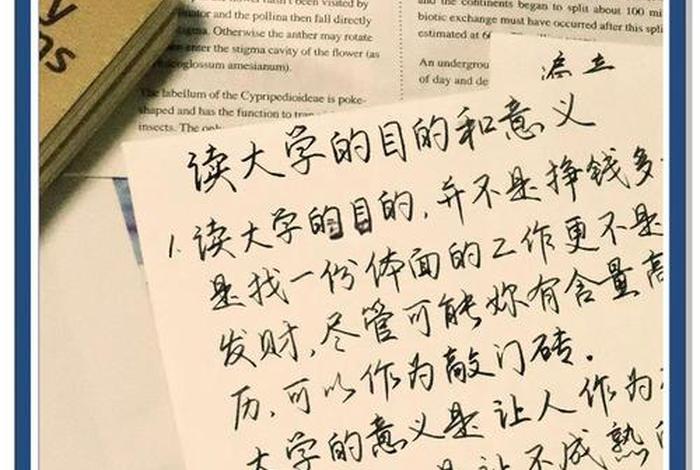 y
ns
flower hasn't been visited by
and the pollina then fall directly
stigma. Otherwise the anther may rotate
enter the stigma cavity of the flower (as
glossum amesianum).
The labellum of the Cypripedioideae is poke-
shaped and has the function to
insects. The
and the continents began to split about 100 mi
biotic exchange must have occurred after this spli
estimated at 6
An undergrou
of day and de
读大学的目的和意义
1. 读大学的目的,并不是挣钱多
是找一份体面的工作更不是
发财,尽管可能你有含量高
历,可以作为敲门砖。
大学的意义是让人作为
是让不成熟的